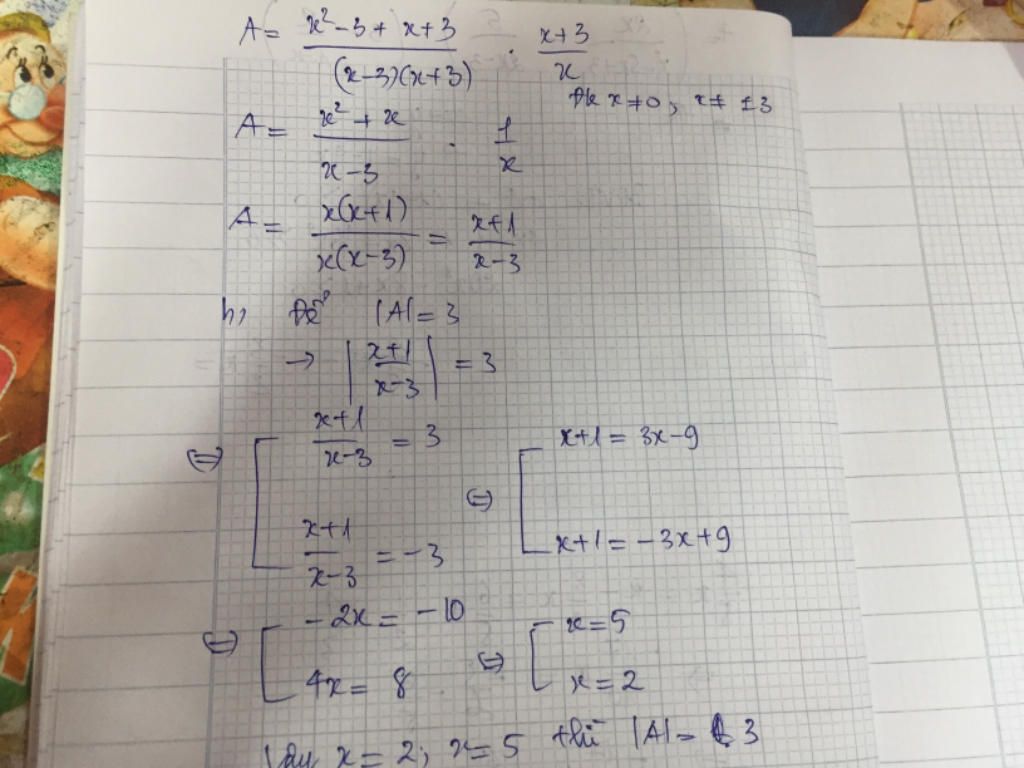 A = (x² - 3 + x + 3)/((x-3)(x+3)) . (x+3)/x
Đk x ≠ 0 ; x ≠ ±3
A = (x² + x)/(x-3) . 1/x
A = x(x+1)/x(x-3) = (x+1)/(x-3)
b, Để |A| = 3
→ |(x+1)/(x-3)| = 3
⇔ [ (x+1)/(x-3) = 3 ⇔ [ x+1 = 3x-9
(x+1)/(x-3) = -3 x+1 = -3x+9
⇔ [ -2x = -10 ⇔ [ x = 5
4x = 8 x = 2
Vậy x = 2; x = 5 thì |A| = 3